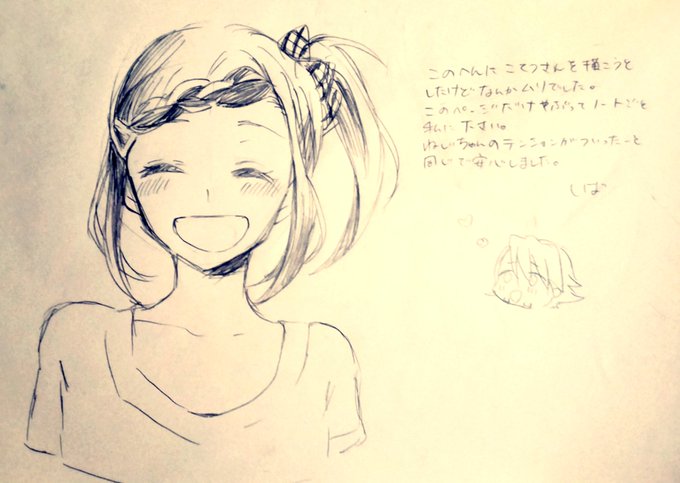 このへんに こてつさんを描こうと
したけどなんかムリでした。
このページだけやぶってノートごと
私に下さい。
ねじちゃんのテンションがついったーと
同じで安心しました。
しば